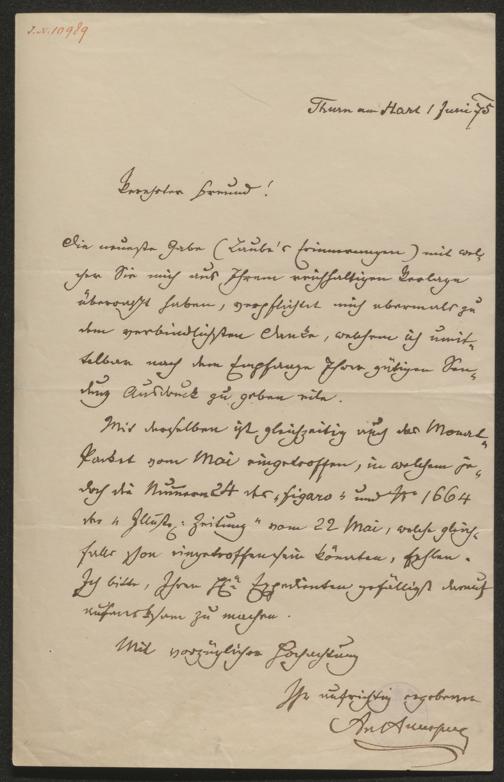 J.N. 10989
Thurn am Hart 1 Juni 75
Verehrter Freund!
Die neueste Gabe (Laube's Erinnerungen) mit wel-
cher Sie mich aus Ihrem reichhaltigen Verlage
überrascht haben, verpflichtet mich abermals zu
dem verbindlichsten Danke, welchem ich unmit-
telbar nach dem Empfange Ihrer gütigen Sen-
dung Ausdruck zu geben eile.
Mit derselben ist gleichzeitig auch das Monat-
Packet vom Mai eingetroffen, in welchem je-
doch die Nummern 24 des "Figaro" und No 1664
der "Illustr. Zeitung" vom 22 Mai, welche gleich-
falls schon eingetroffen sein könnten, fehlen.
Ich bitte, Ihren Expedienten gefälligst darauf
aufmerksam zu machen.
Mit vorzüglicher Hochachtung
Ihr aufrichtig ergebener
Ant Auersperg